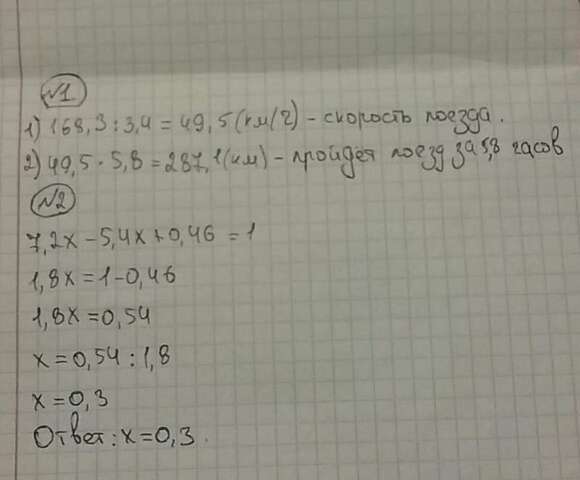 №1
1) 168,3 : 3,4 = 49,5 (км/ч) - скорость поезда.
2) 49,5 · 5,8 = 287,1 (км) - пройдёт поезд за 5,8 часов
№2
7,2x - 5,4x + 0,46 = 1
1,8x = 1 - 0,46
1,8x = 0,54
x = 0,54 : 1,8
x = 0,3
Ответ: x = 0,3.